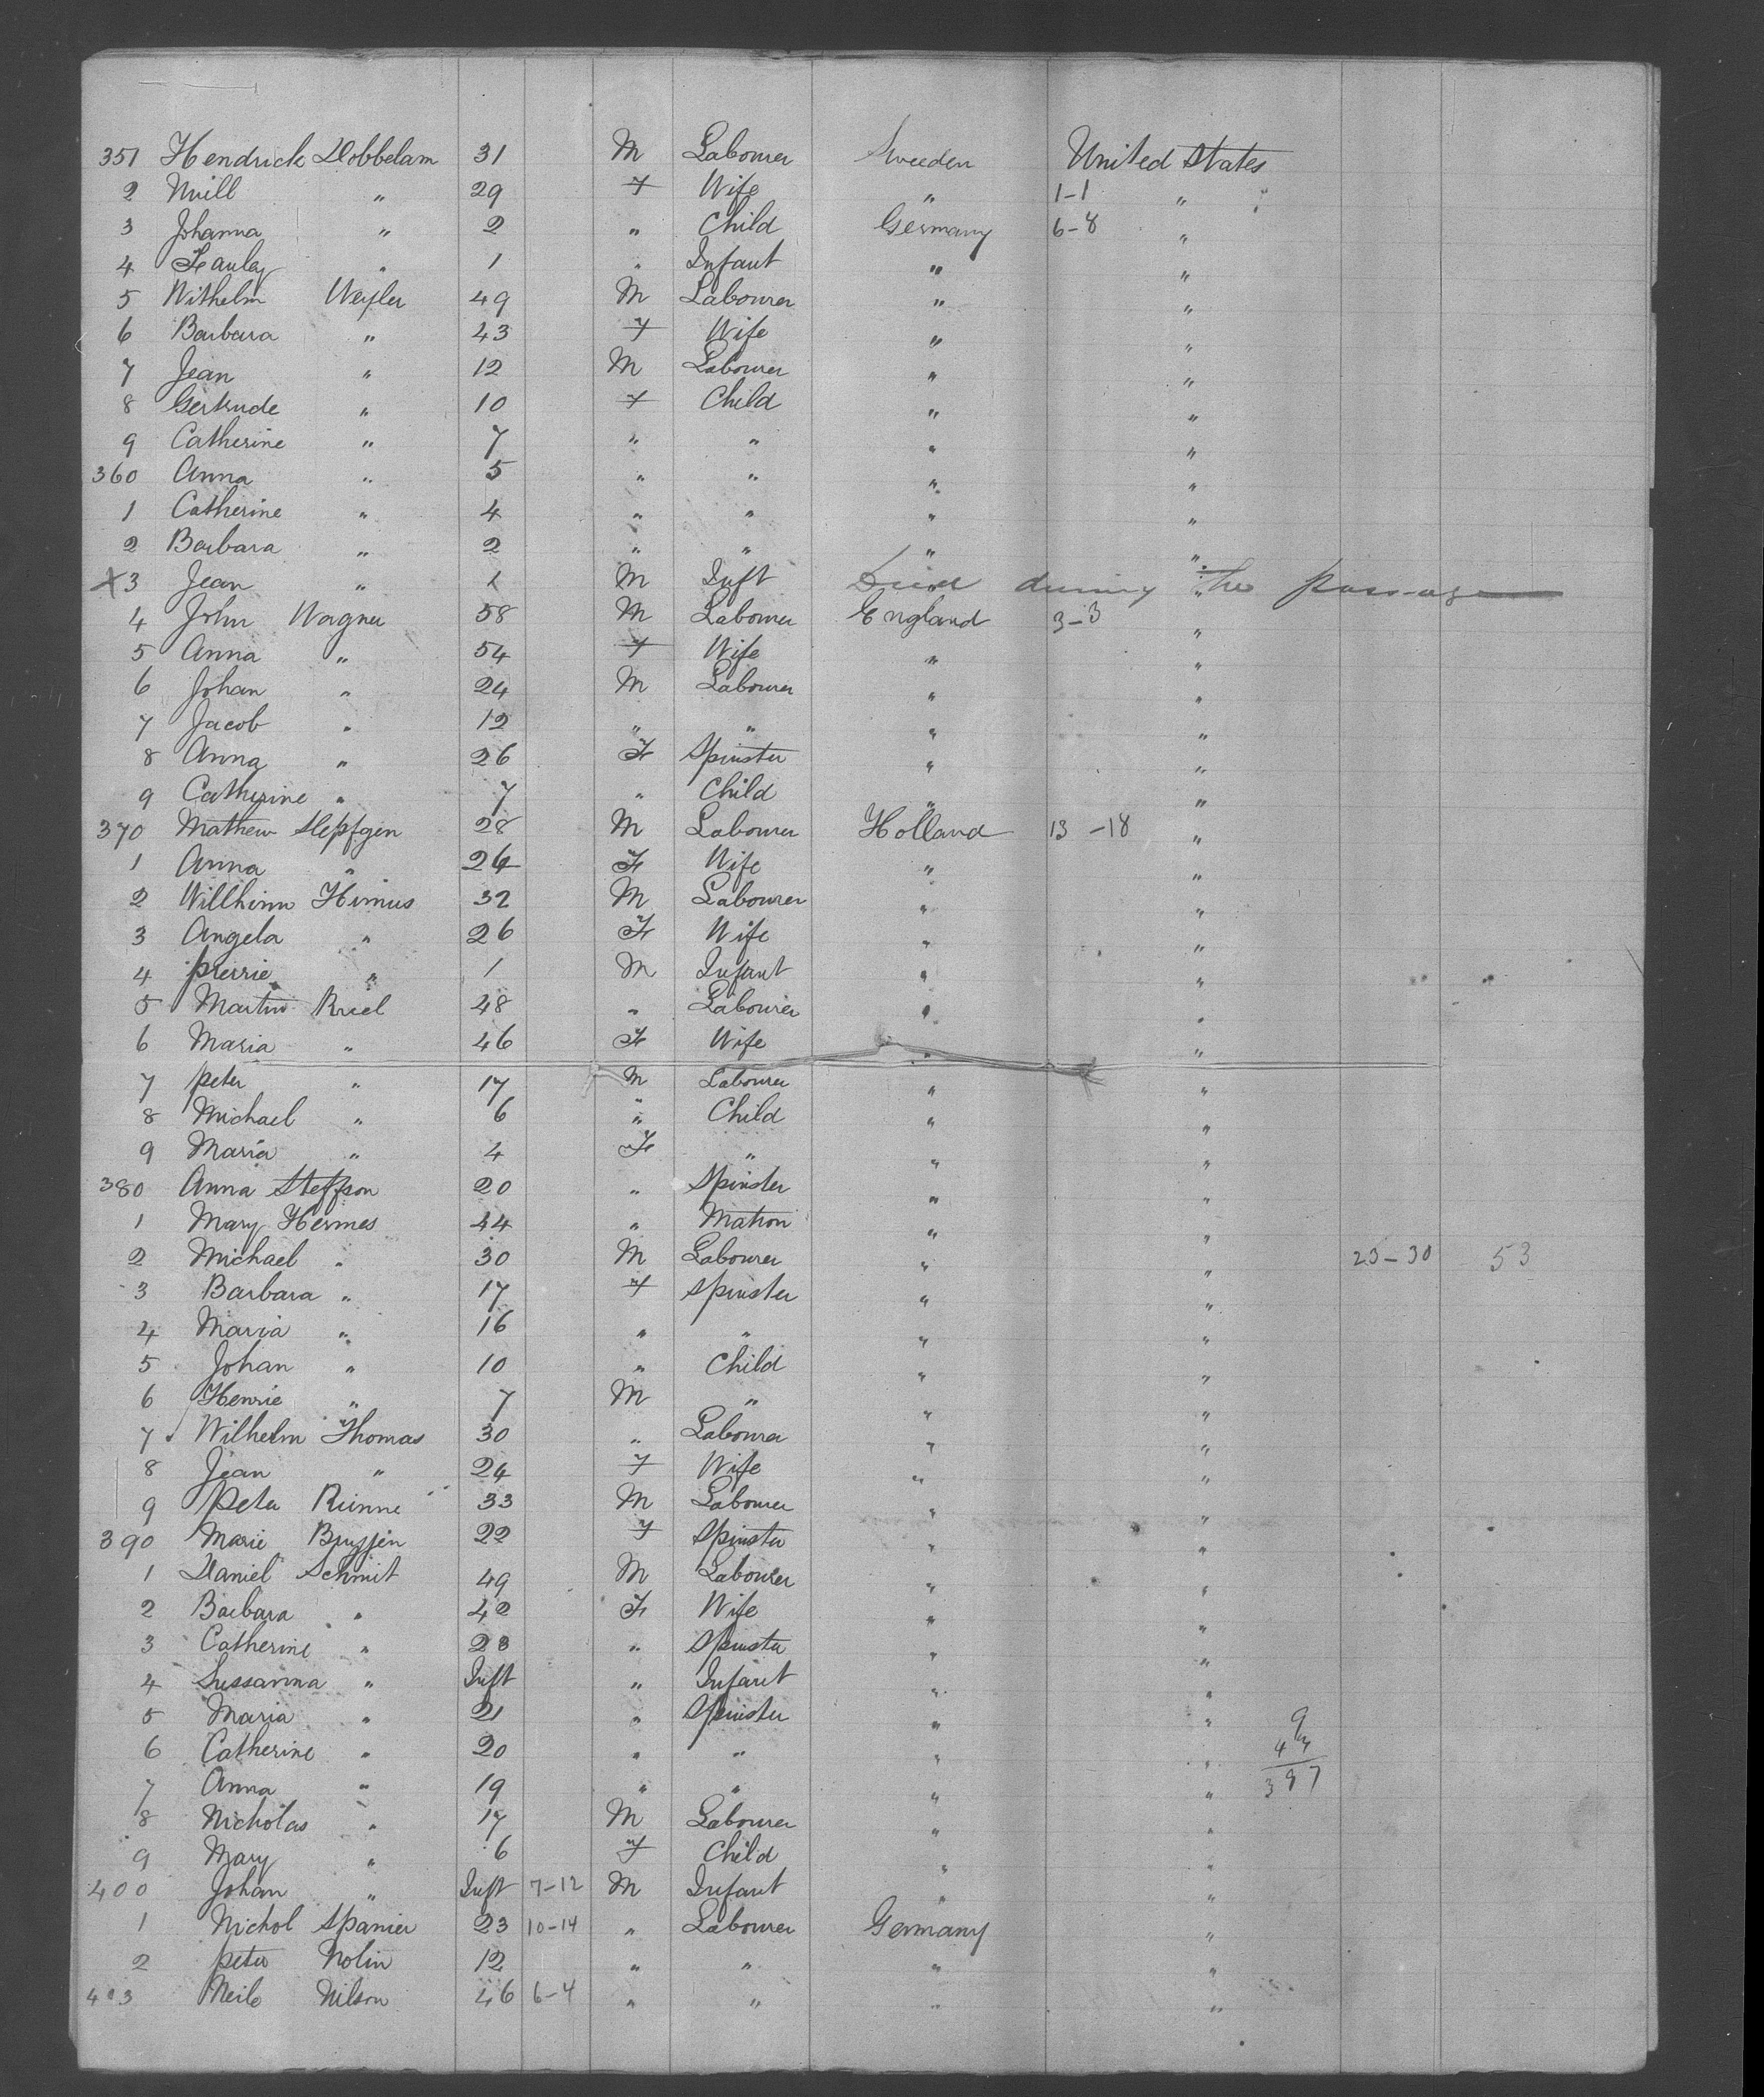 351 Hendrick Dobbelam 31 M Labourer Sweeden United States
2 " 29 F Wife " 1-1 "
3 Johanna " 2 " Child Germany 6-8 "
4 " 1 " Infant " "
5 Withelm Weyler 49 M Labourer " "
6 Barbara " 43 F Wife " "
7 Jean " 12 M Labourer " "
8 Gertrude " 10 F Child " "
9 Catherine " 7 " " " "
360 Anna " 5 " " " "
1 Catherine " 4 " " " "
2 Barbara " 2 " " " "
X3 Jean " 1 M Inft Died during the passage
4 John Wagner 58 M Labourer England 3-3 "
5 Anna " 54 F Wife " "
6 Johan " 24 M Labourer " "
7 Jacob " 12 " " " "
8 Anna " 26 F Spinster " "
9 Catherine " 7 " Child " "
370 Mathew Slepfgen 28 M Labourer Holland 13-18 "
1 Anna " 26 F Wife " "
2 Willhinm Himus 32 M Labourer " "
3 Angela " 26 F Wife " "
4 Pierrie " 1 M Infant " "
5 Martin Kreel 48 " Labourer " "
6 Maria " 46 F Wife " "
7 Peter " 17 M Labourer " "
8 Michael " 6 " Child " "
9 Maria " 4 F " " "
380 Anna Steffson 20 " Spinster " "
1 Mary Hermes 44 " Matron " "
2 Michael " 30 M Labourer " " 23-30 53
3 Barbara " 17 F Spinster " "
4 Maria " 16 " " " "
5 Johan " 10 " Child " "
6 Henrie " 7 M " " "
7 Wilhelm Thomas 30 " Labourer " "
8 Jean " 24 F Wife " "
9 Peter Rinne 33 M Labourer " "
390 Marie 22 F Spinster " "
1 Daniel Schmit 49 M Labourer " "
2 Barbara " 42 F Wife " "
3 Catherine " 23 " Spinster " "
4 Sussanna " Inft " Infant " "
5 Maria " 21 " Spinster " " 9
6 Catherine " 20 " " " "
7 Anna " 19 " " " " 397
8 Nicholas " 17 M Labourer " "
9 Mary " 6 F Child " "
400 Johan " Inft 7-12 M Infant " "
1 Nichol Spanier 23 10-14 " Labourer Germany "
2 Peter Nolin 12 " " " "
403 Neils Nilson 46 6-4 " " " "